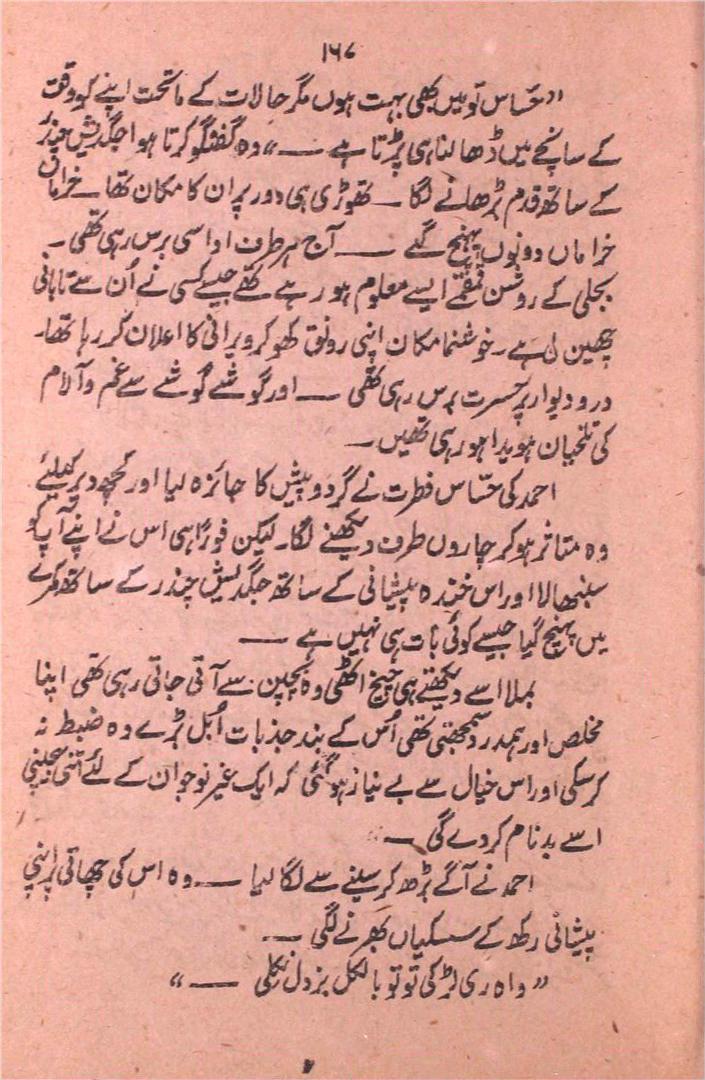 ۱۶۷
”حسّاس تو میں بھی بہت ہوں مگر حالات کے ماتحت اپنے کو وقت
کے سانچے میں ڈھالنا ہی پڑتا ہے ـــ“ وہ گفتگو کرتا ہوا جگدیش چندر
کے ساتھ قدم بڑھانے لگا ـ تھوڑی ہی دور پر ان کا مکان تھا ـ خراماں
خراماں دونوں پہنچ گئے ـــ آج ہر طرف اداسی برس رہی تھی ـ
بجلی کے روشن قمقمے ایسے معلوم ہو رہے تھے جیسے کسی نے اُن سے تابانی
چھین لی ہے ـ خوشنما مکان اپنی رونق کھو کر ویرانی کا اعلان کر رہا تھا ـ
در و دیوار پر حسرت برس رہی تھی ـــ اور گوشے گوشے سے غم و آلام
کی تلخیاں ہویدا ہو رہی تھیں ـ
احمد کی حسّاس فطرت نے گرد و پیش کا جائزہ لیا اور کچھ دیر کیلئے
وہ متاثر ہو کر چاروں طرف دیکھنے لگا ـ لیکن فوراً ہی اس نے اپنے آپ کو
سنبھالا اور اس خندہ پیشانی کے ساتھ جگدیش چندر کے ساتھ کمرے
میں پہنچ گیا جیسے کوئی بات ہی نہیں ہے ـــ
بملا اسے دیکھتے ہی چیخ اٹھی وہ بچپن سے آتی جاتی رہی تھی اپنا
مخلص اور ہمدرد سمجھتی تھی اُس کے بند جذبات اُبل پڑے وہ ضبط نہ
کر سکی اور اس خیال سے بے نیاز ہو گئی کہ ایک غیر نوجوان کے لئے اتنی بے چینی
اسے بدنام کر دے گی ـــ
احمد نے آگے بڑھ کر سینے سے لگا لیا ـــ وہ اس کی چھاتی پر اپنی
پیشانی رکھ کے سسکیاں بھرنے لگی ـــ
”واہ ری لڑکی تو تو بالکل بزدل نکلی ـــ“